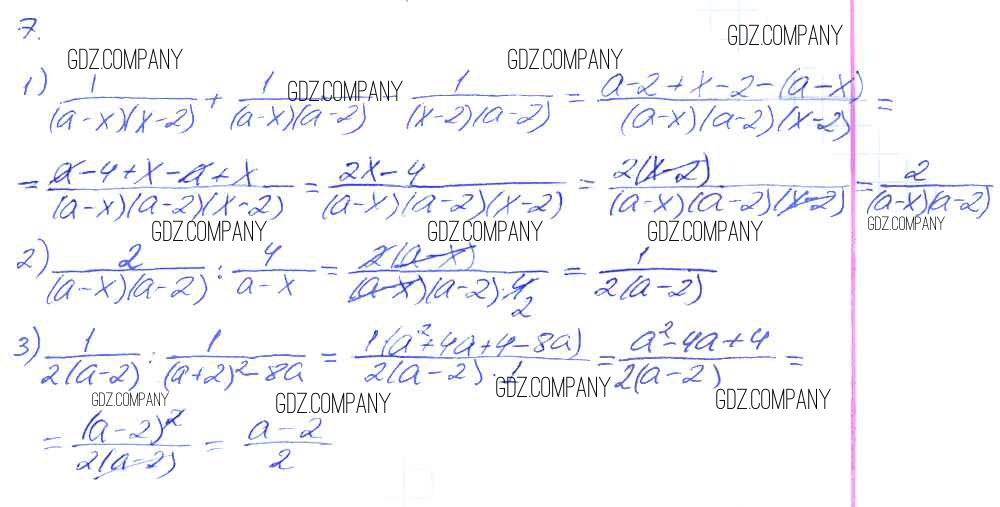 7.
GDZ.COMPANY GDZ.COMPANY GDZ.COMPANY
1) 1/((a-x)(x-2)) + 1/((a-x)(a-2)) GDZ.COMPANY 1/((x-2)(a-2)) = (a-2+x-2-(a-x))/((a-x)(a-2)(x-2)) =
= (a-4+x-a+x)/((a-x)(a-2)(x-2)) = (2x-4)/((a-x)(a-2)(x-2)) = 2(x-2)/((a-x)(a-2)(x-2)) = 2/((a-x)(a-2))
GDZ.COMPANY GDZ.COMPANY GDZ.COMPANY GDZ.COMPANY
2) 2/((a-x)(a-2)) : 4/(a-x) = 2(a-x)/((a-x)(a-2)·4 2) = 1/(2(a-2))
3) 1/(2(a-2)) : 1/((a+2)²-8a) = 1(a²+4a+4-8a)/(2(a-2)·1) = (a²-4a+4)/(2(a-2)) =
GDZ.COMPANY GDZ.COMPANY GDZ.COMPANY GDZ.COMPANY
= (a-2)²/(2(a-2)) = (a-2)/2